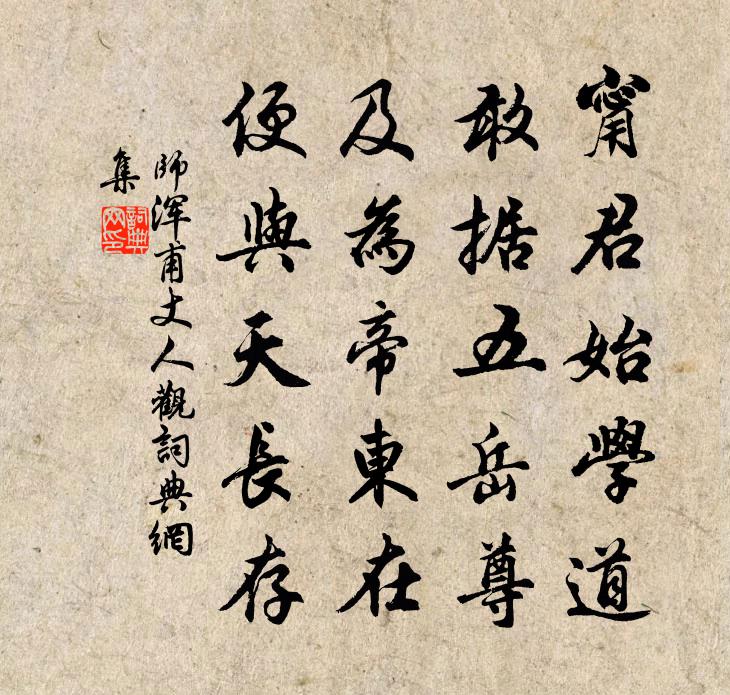 甯君始學道
敢据五岳尊
及為帝東在
便與天長存
師渾甫丈人觀詞典網
集
詞典網印